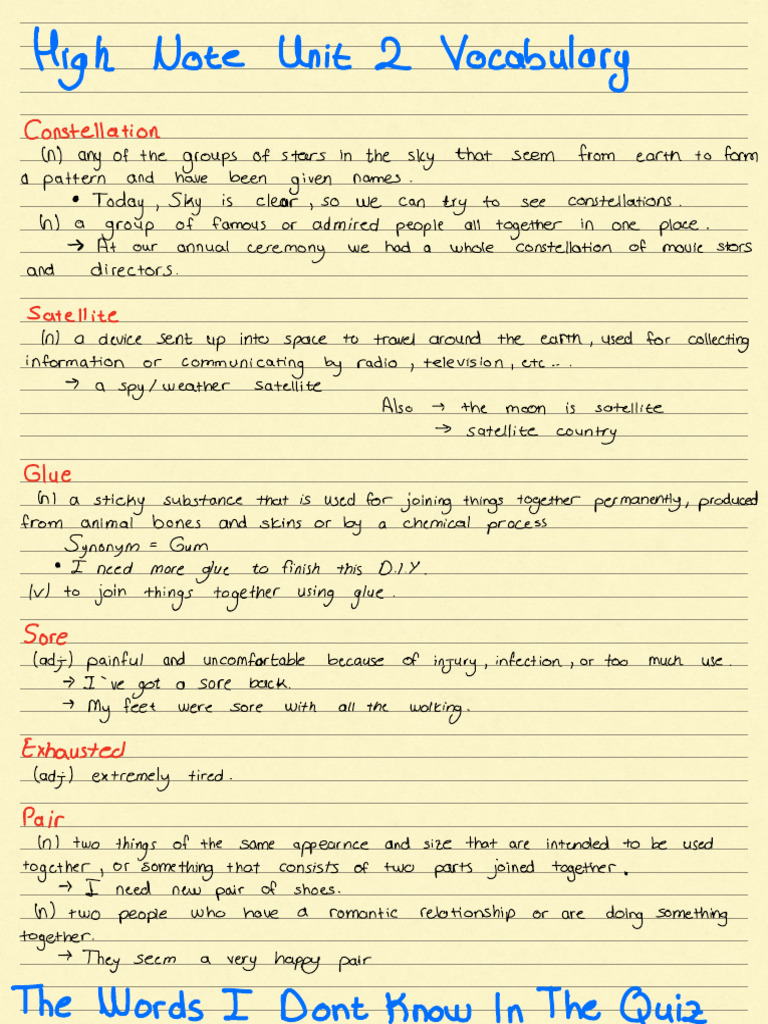 High Note Unit 2 Vocabulary
Constellation
(n) any of the groups of stars in the sky that seem from earth to form
a pattern and have been given names.
• Today, Sky is clear, so we can try to see constellations.
(n) a group of famous or admired people all together in one place.
→ At our annual ceremony we had a whole constellation of movie stars
and directors.
Satellite
(n) a device sent up into space to travel around the earth, used for collecting
information or communicating by radio, television, etc...
→ a spy/weather satellite
Also → the moon is satellite
→ satellite country
Glue
(n) a sticky substance that is used for joining things together permanently, produced
from animal bones and skins or by a chemical process
Synonym = Gum
• I need more glue to finish this D.I.Y.
(v) to join things together using glue.
Sore
(adj) painful and uncomfortable because of injury, infection, or too much use.
→ I've got a sore back.
→ My feet were sore with all the walking.
Exhausted
(adj) extremely tired.
Pair
(n) two things of the same appearnce and size that are intended to be used
together, or something that consists of two parts joined together.
→ I need new pair of shoes.
(n) two people who have a romantic relationship or are doing something
together.
→ They seem a very happy pair
The Words I Dont Know In The Quiz